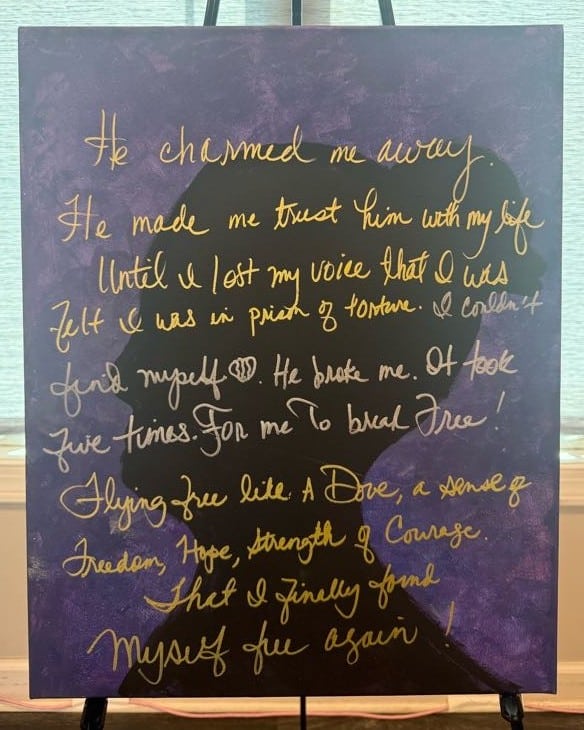 He charmed me away.
He made me trust him with my life
Until I lost my voice that I was
Felt I was in prison of torture. I couldn't
find myself. He broke me. It took
five times. For me To break Free!
Flying free like A Dove, a sense of
Freedom, Hope, strength of Courage.
That I finally found
Myself free again!